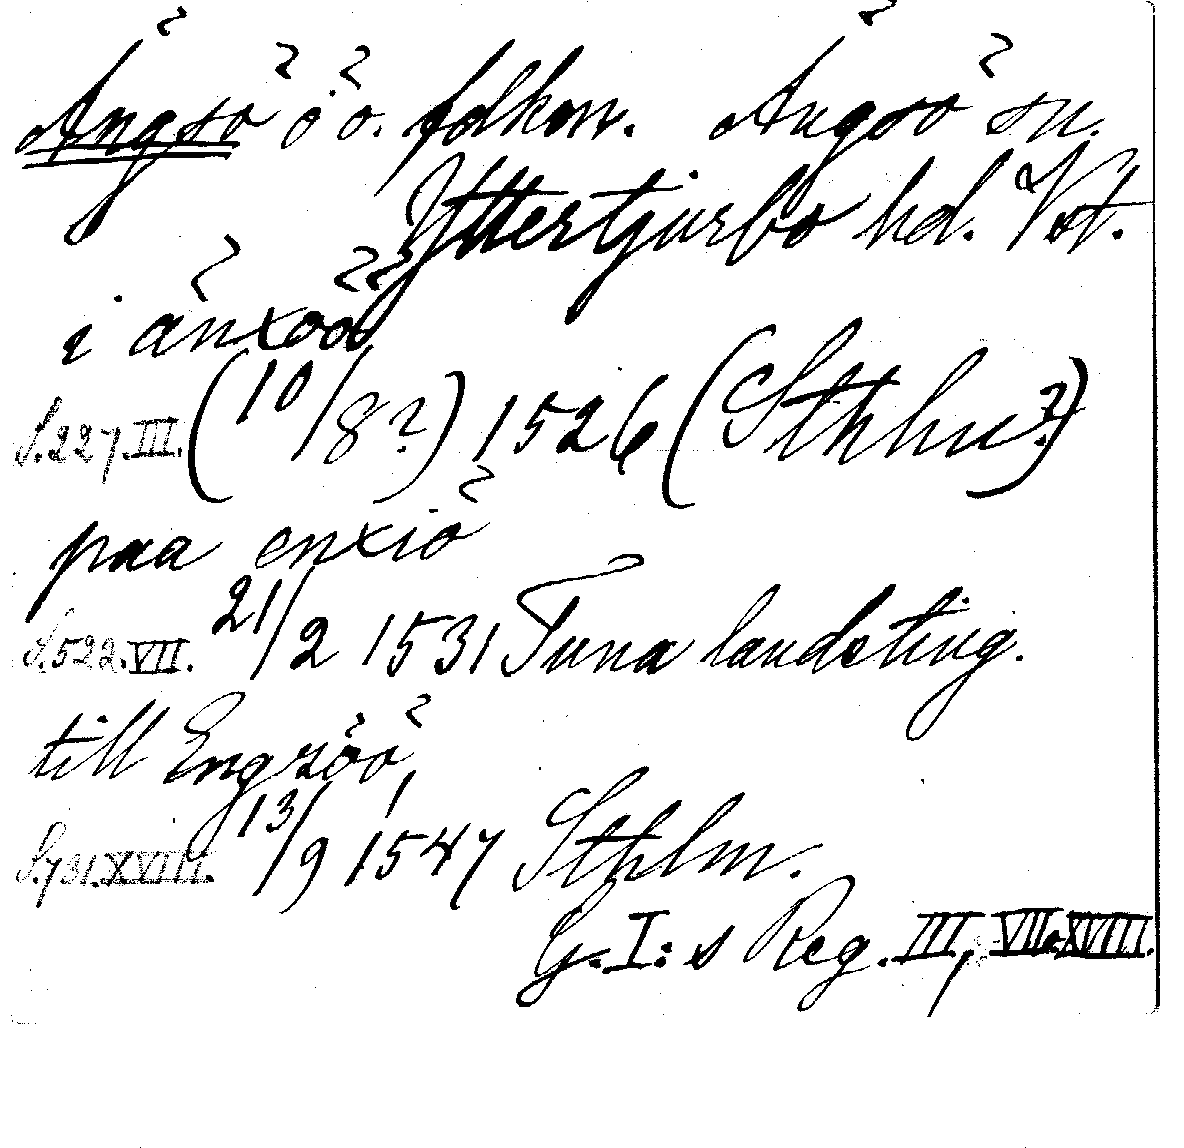 Ängsö ö o. folkon. Ängsö sn.
Yttertjurbo hd. Vst.
i änxöö
S. 227. III. (10/8?) 1526 (Sthlm?)
paa enxiö
S. 522. VII. 21/2 1531 Tuna landsting.
till Engzöö,
S. 731. XVIII. 13/9 1547 Sthlm.
G. I:s Reg. III, VII o. XVIII.